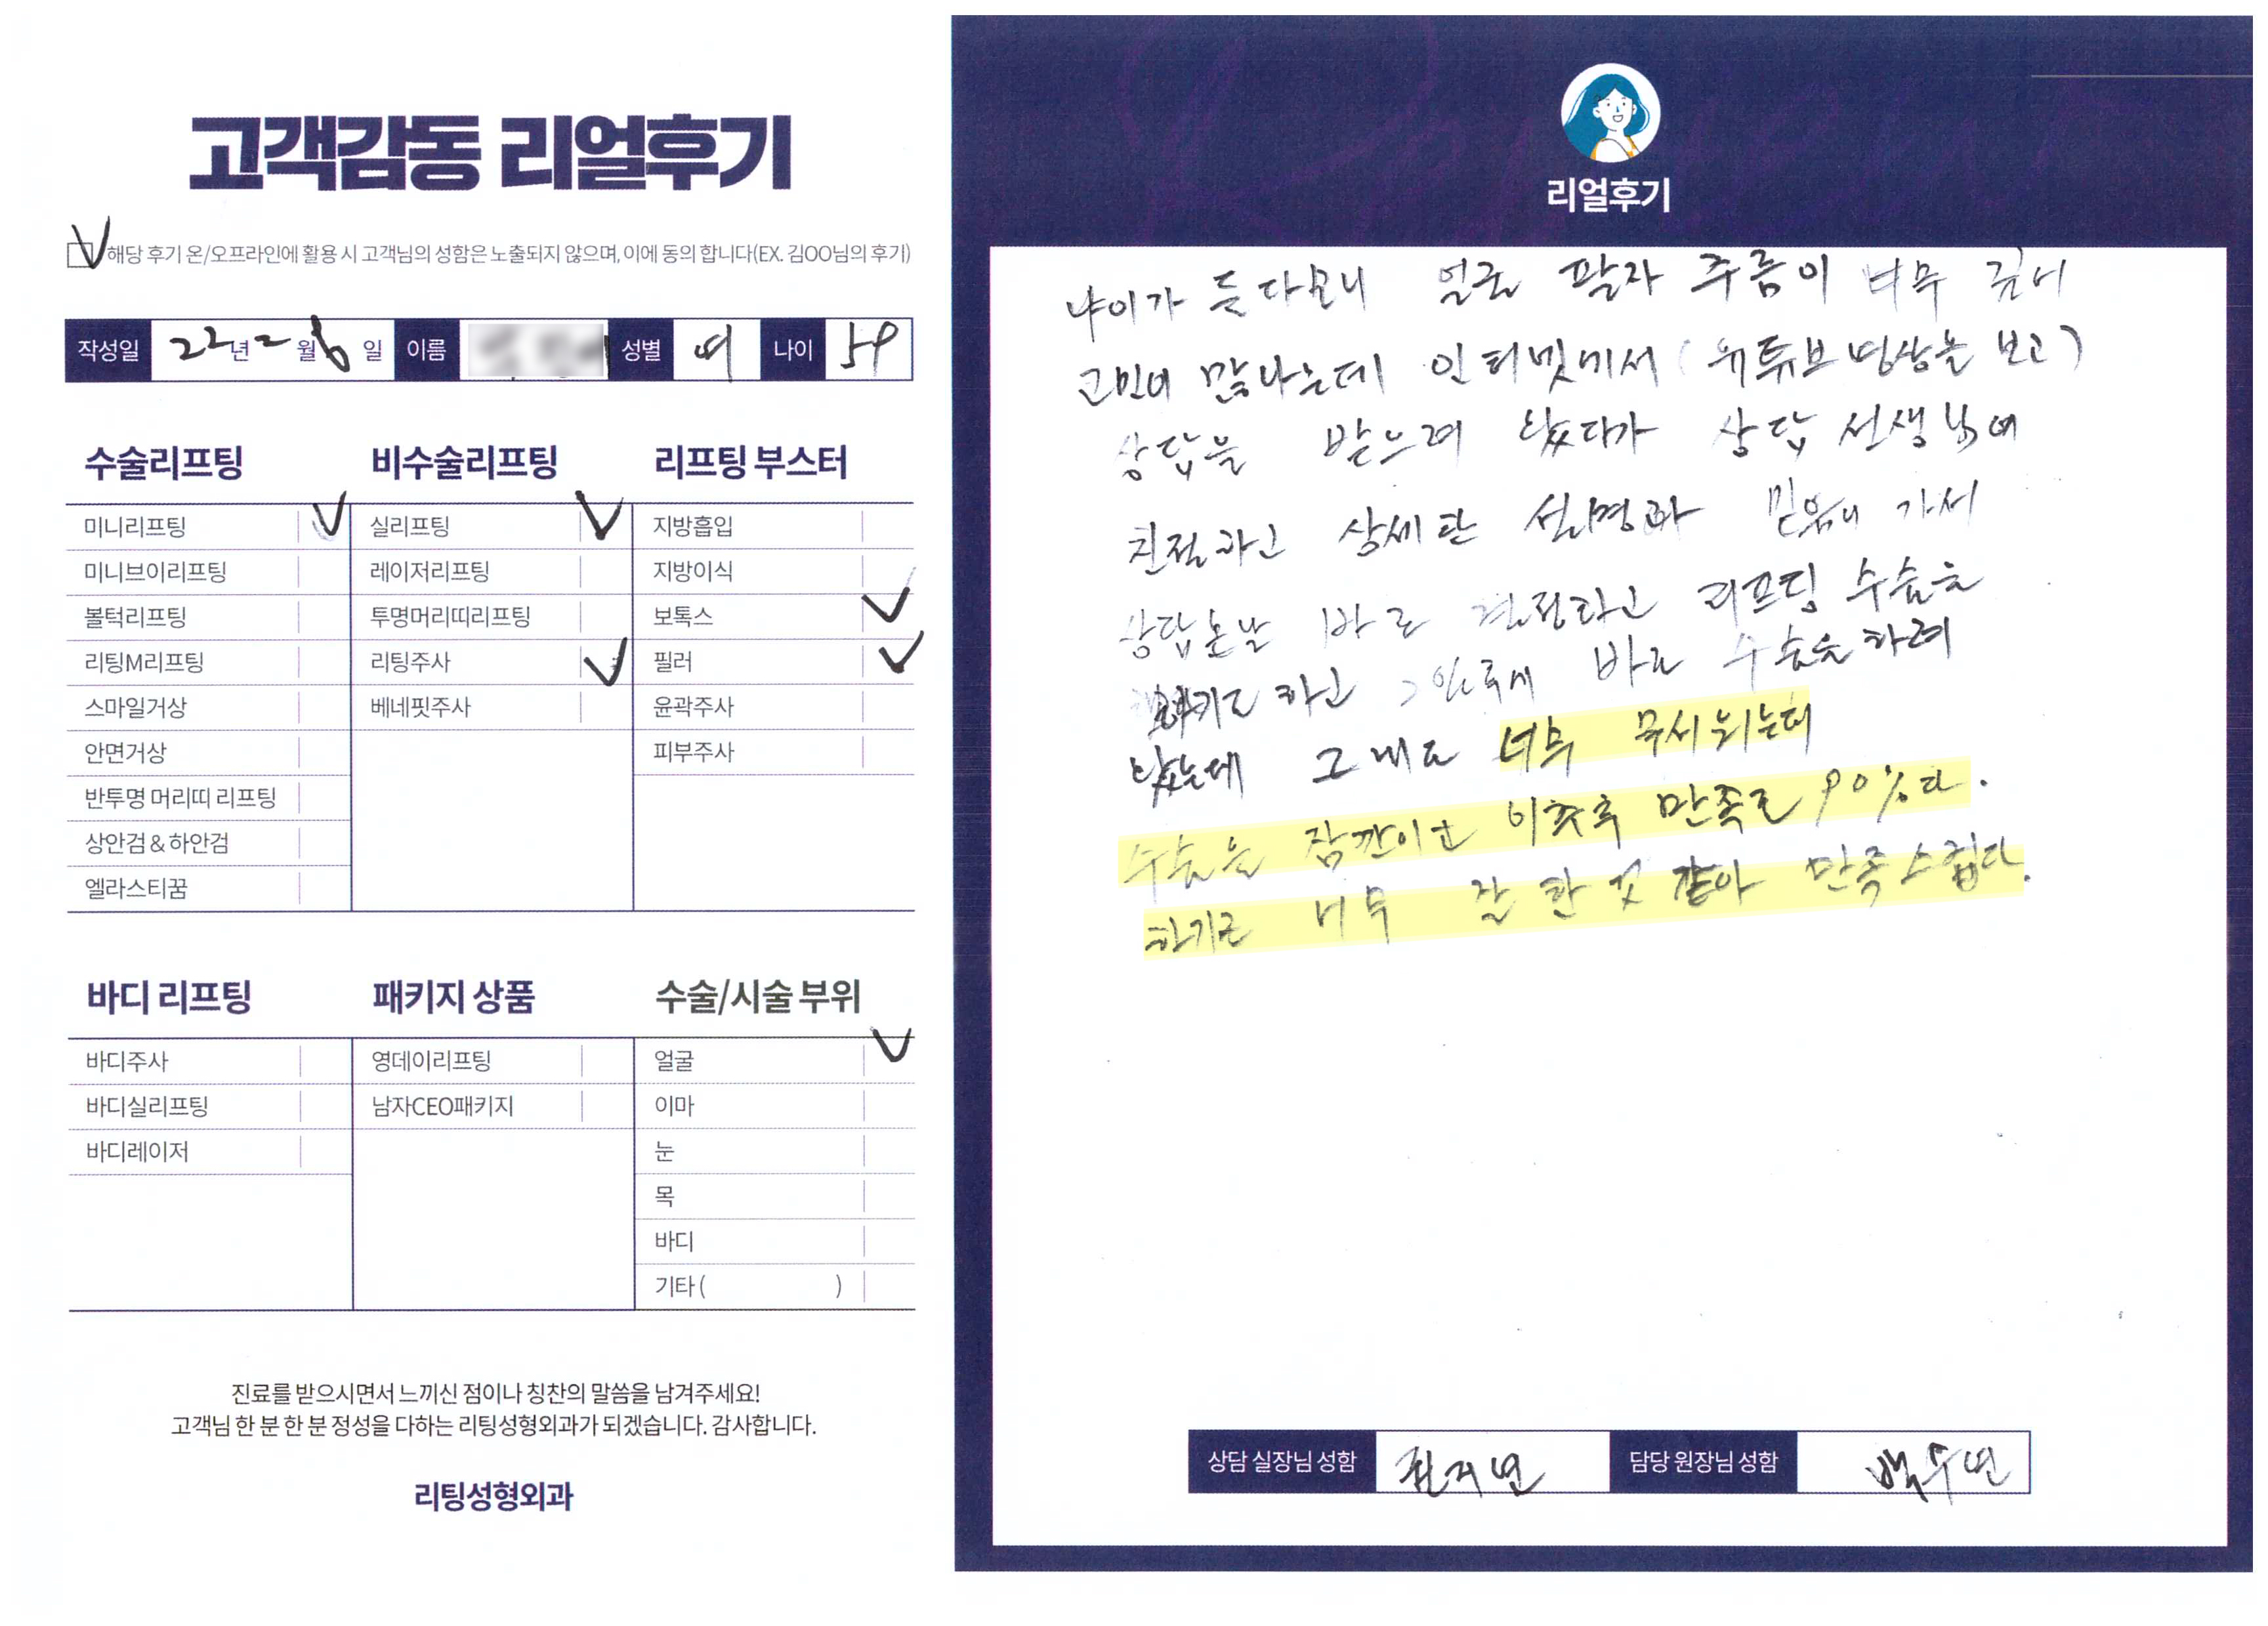 고객감동 리얼후기
해당 후기 온/오프라인에 활용 시 고객님의 성함은 노출되지 않으며, 이에 동의 합니다(EX. 김OO님의 후기)
작성일 22년 2월 6일 이름 성별 여 나이 59
수술리프팅 비수술리프팅 리프팅 부스터
미니리프팅 실리프팅 지방흡입
미니브이리프팅 레이저리프팅 지방이식
볼턱리프팅 투명머리띠리프팅 보톡스
리팅M리프팅 리팅주사 필러
스마일거상 베네핏주사 윤곽주사
안면거상 피부주사
반투명 머리띠 리프팅
상안검 & 하안검
엘라스티꿈
바디 리프팅 패키지 상품 수술/시술 부위
바디주사 영데이리프팅 얼굴
바디실리프팅 남자CEO패키지 이마
바디레이저 눈
목
바디
기타 ( )
진료를 받으시면서 느끼신 점이나 칭찬의 말씀을 남겨주세요!
고객님 한 분 한 분 정성을 다하는 리팅성형외과가 되겠습니다. 감사합니다.
리팅성형외과
리얼후기
나이가 든다보니 얼굴 팔자 주름이 너무 깊어
고민이 많나는데 인터넷에서 (유튜브 영상을 보고)
상담을 받으려 왔다가 상담 선생님에
친절하고 상세한 설명과 믿음이 가서
상담온날 바로 결정하고 리프팅 수술을
하고 바로 수술을 하려
왔는데 그래도 너무 무서워는데
수술은 잠깐이고 이후 만족도 90%다.
하기로 너무 잘 한 것 같아 만족스럽다.
상담 실장님 성함 지연 담당 원장님 성함 백수연